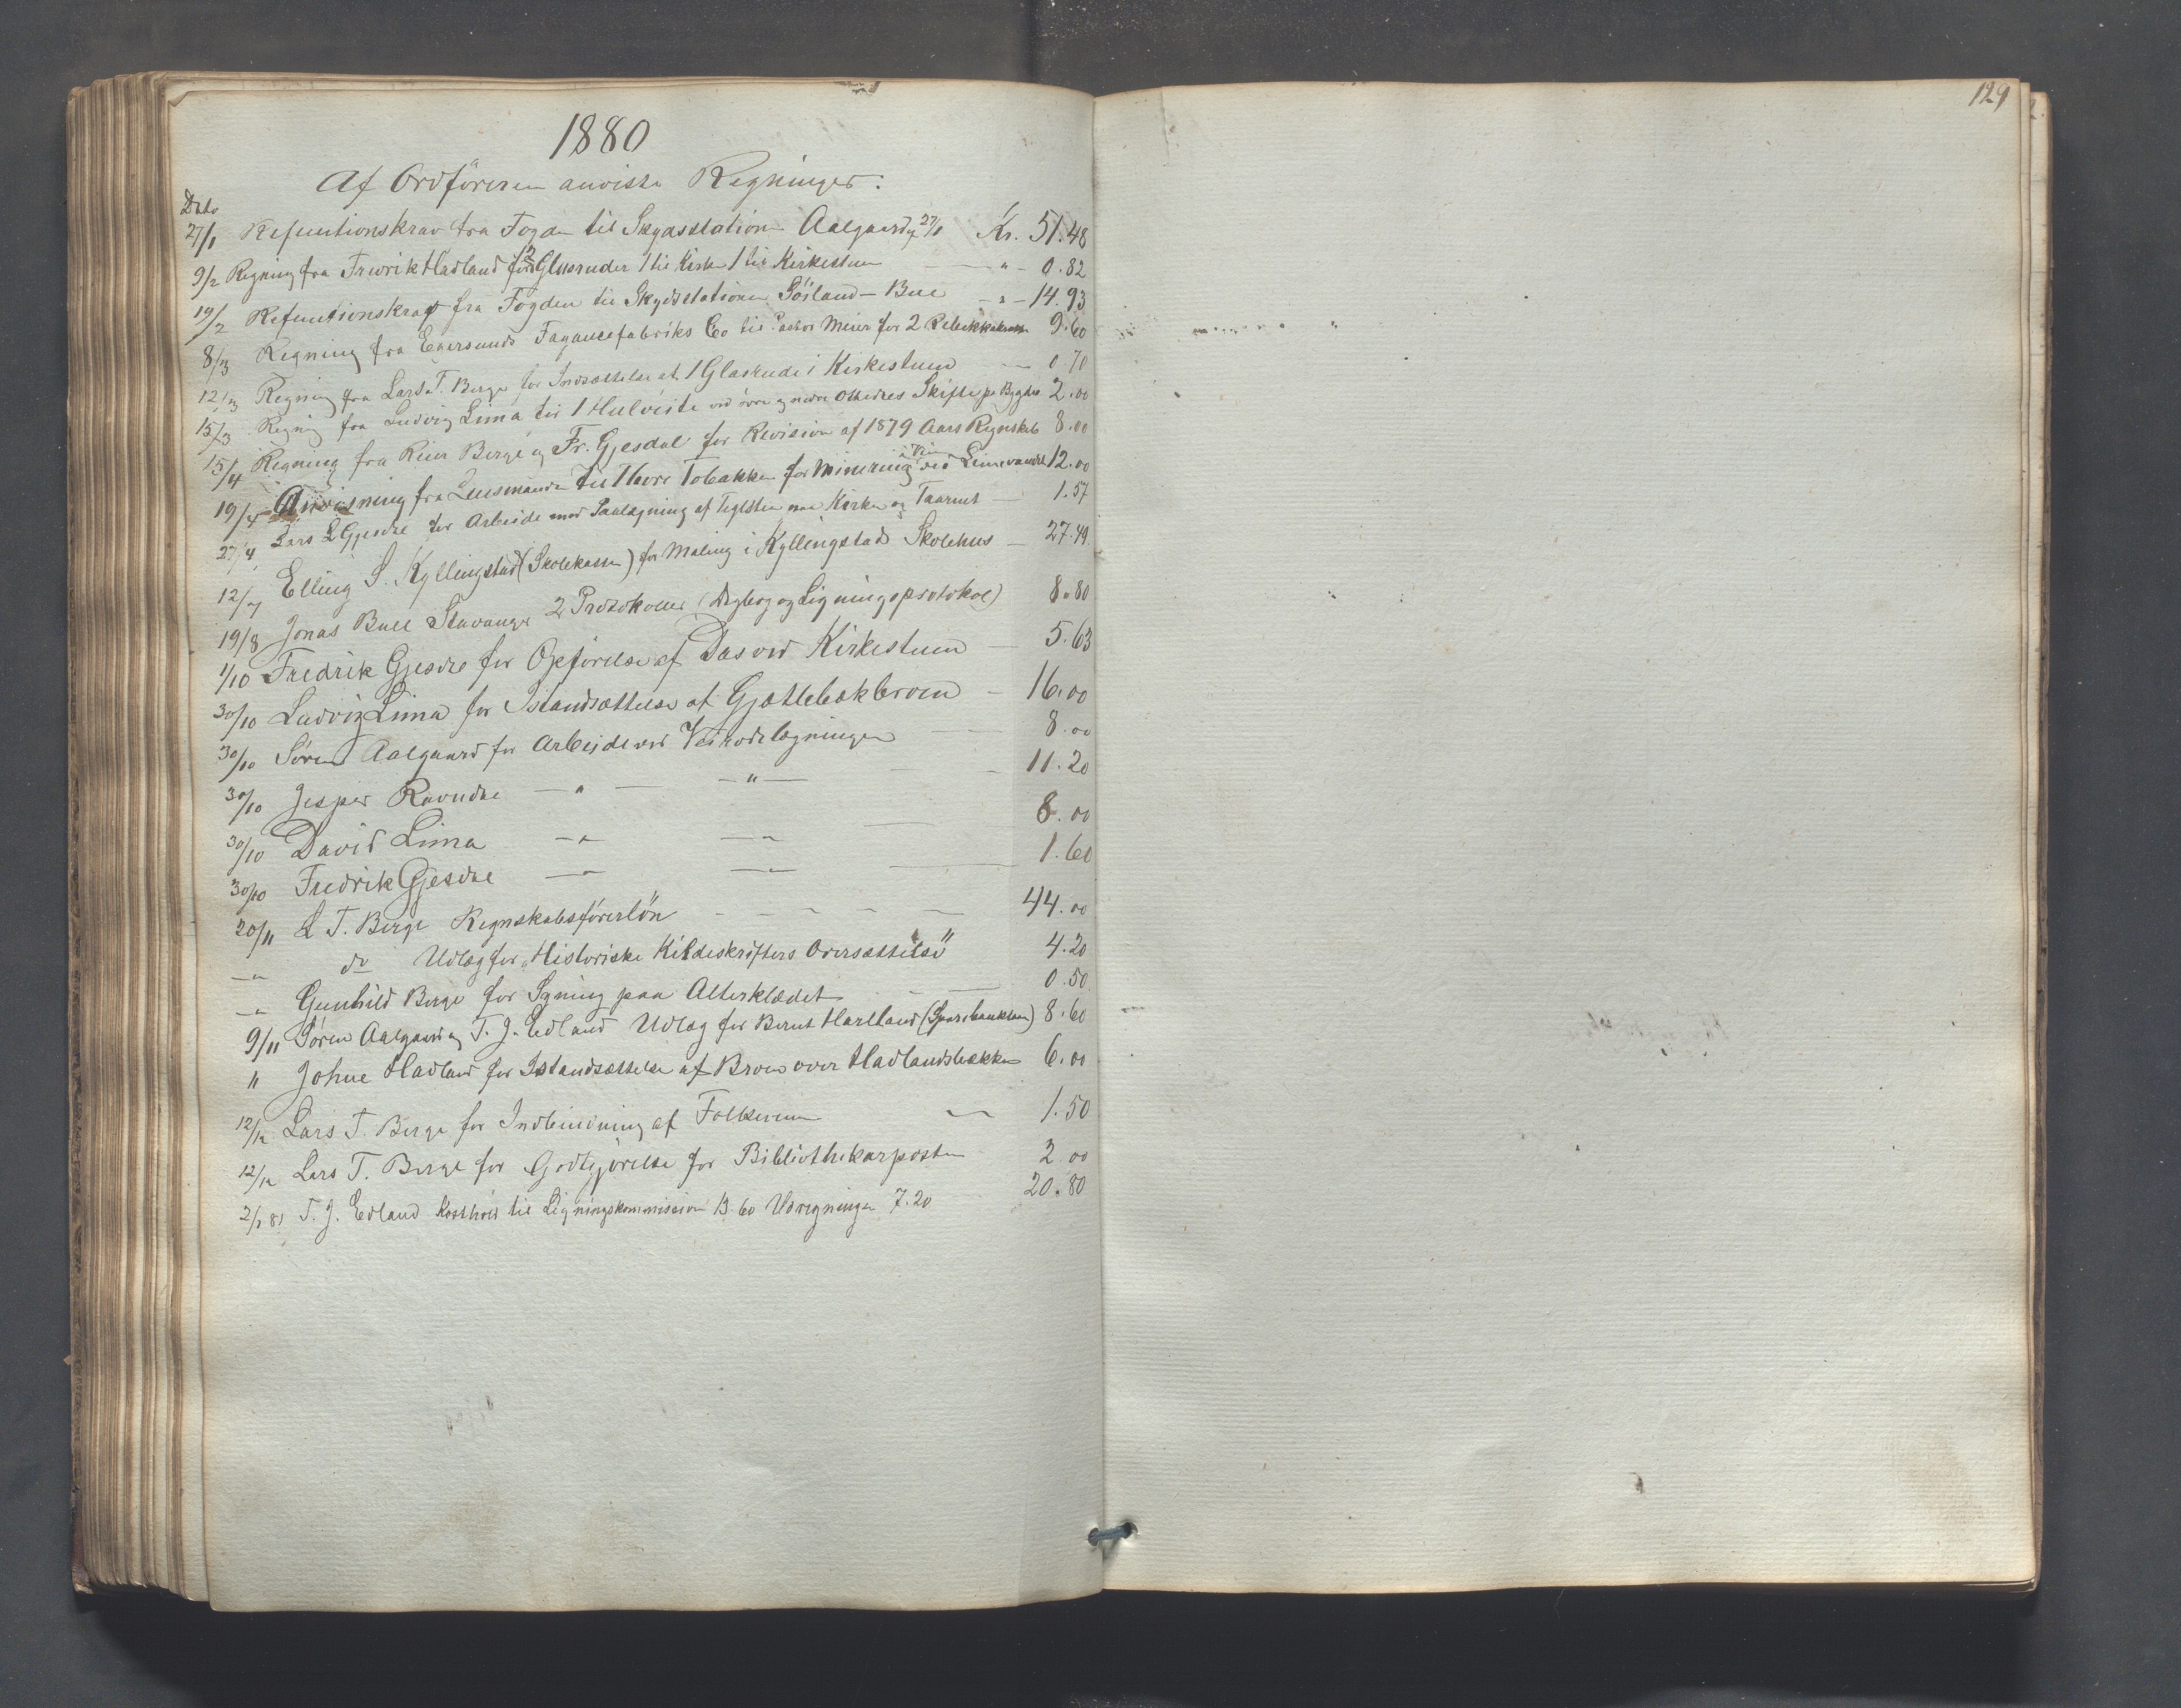 129
1880
Af Ordføreren anviste Regninger:
Dato
27/1 Refusionskrav fra Fogden til Skydsstation Aalgaard 27/1 Kr. 51.48
9/2 Regning fra Fredrik Hadland for 2 Glasruder 1 til Kirken 1 til Kirkestuen — " - 0.82
19/2 Refusionskrav fra Fogden til Skydsstationen Søiland - Bue - " - 14.93
8/3 Regning fra Egersunds Fayancefabriks Co til Pastor Meier for 2 9.60
12/3 Regning fra Lars T. Berge for Indsættelse af 1 Glasrude i Kirkestuen 0.70
15/3 Regning fra Ludvig Lima til 1 ved øvre og nedre Skifte paa 2.00
15/4 Regning fra Reier Berge og Fr. Gjesdal for Revision af 1879 Aars Regnskab 8.00
19/4 Anvisning fra Lensmanden til Thore Tobakken for Minering ved Limevandet 12.00
27/4 Lars L Gjesdal for Arbeide med Paalægning af Teglsten paa Kirken og Taarnet — 1.57
12/7 Elling S. Kyllingstad (Skolekassen) for Maling i Kyllingstad Skolehus — 27.49
19/8 Jonas Bull Stavanger 2 Protokoller (Dagbog og Ligningsprotokol) 8.80
1/10 Fredrik Gjesdal for Opførelse af Das ved Kirkestuen — 5.63
30/10 Ludvig Lima for Istandsættelse af Gjætlebækbroen — 16.00
30/10 Søren Aalgaard for Arbeide ved Veirodelægningen — 8.00
30/10 Jesper Ravndal — " — — " — - 11.20
30/10 David Lima — " — — " — 8.00
30/10 Fredrik Gjesdal — " — — " — 1.60
20/11 L T. Berge Regnskabsførerløn - - - - — 44.00
— " do Udlæg for "Historiske Kildeskrifters Oversættelse" 4.20
— " Gunhild Berge for Syning paa Alterklædet — — 0.50
9/11 Søren Aalgaard og T. J. Edland Udlæg for Bernt Harland (Sparebanken) 8.60
" Johne Hadland for Istandsættelse af Broen over Hadlandsbækken 6.00
12/12 Lars T. Berge for Indbinding af Folkevennen — 1.50
12/12 Lars T. Berge for Godtgjørelse for Bibliothekarposten 2.00
2/1 81 T. J. Edland Kosthold til Ligningskommission 13.60 Udregningen 7.20 20.80